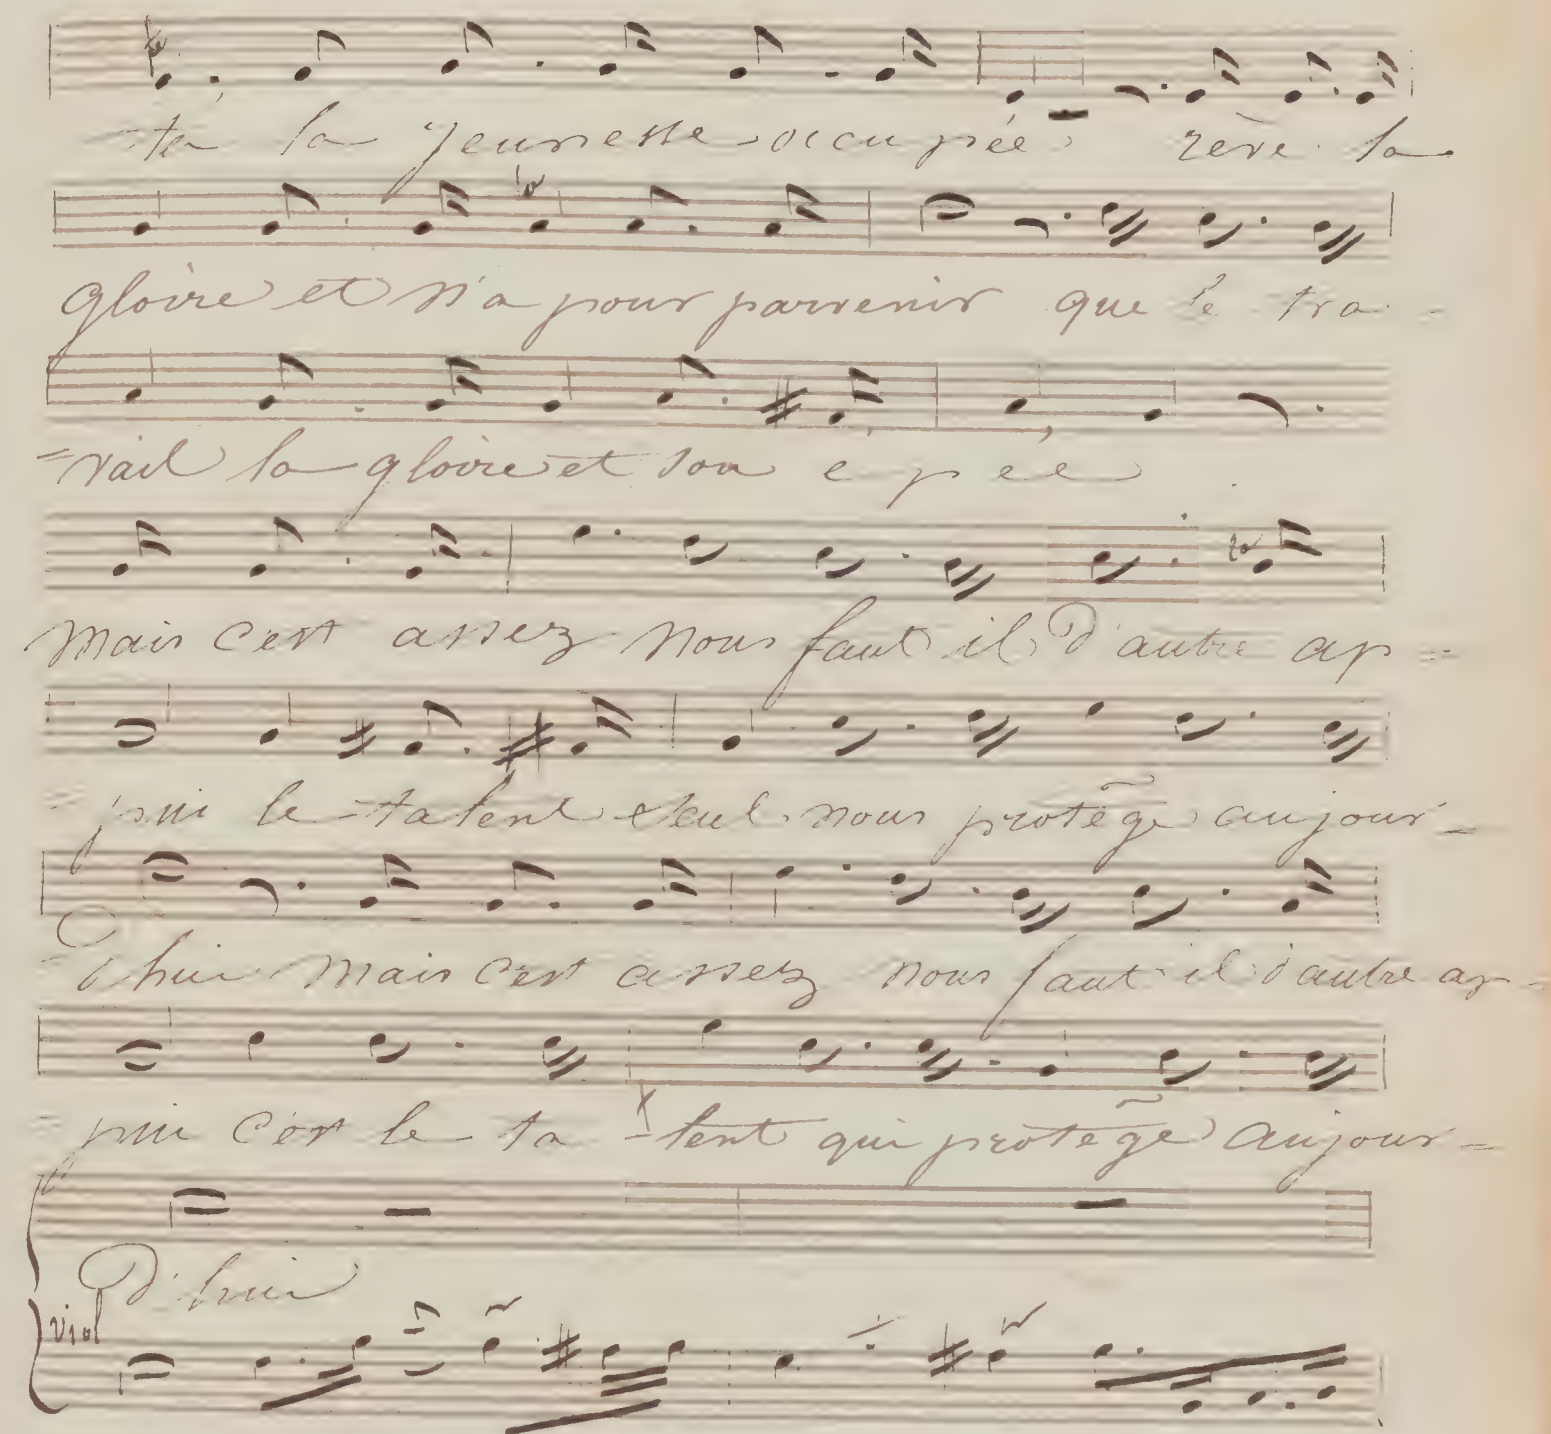 té la jeunesse occupée rève la
gloire et n'a pour parvenir que le tra-
=vail la gloire et son e p ée
mais c'est assez nous faut il d'autre ap=
=pui le talent seul nous protège aujour=
=d'hui mais c'est assez nous faut il d'autre ap=
=pui c'est le-ta-lent qui protège aujour=
d'hui
Viol